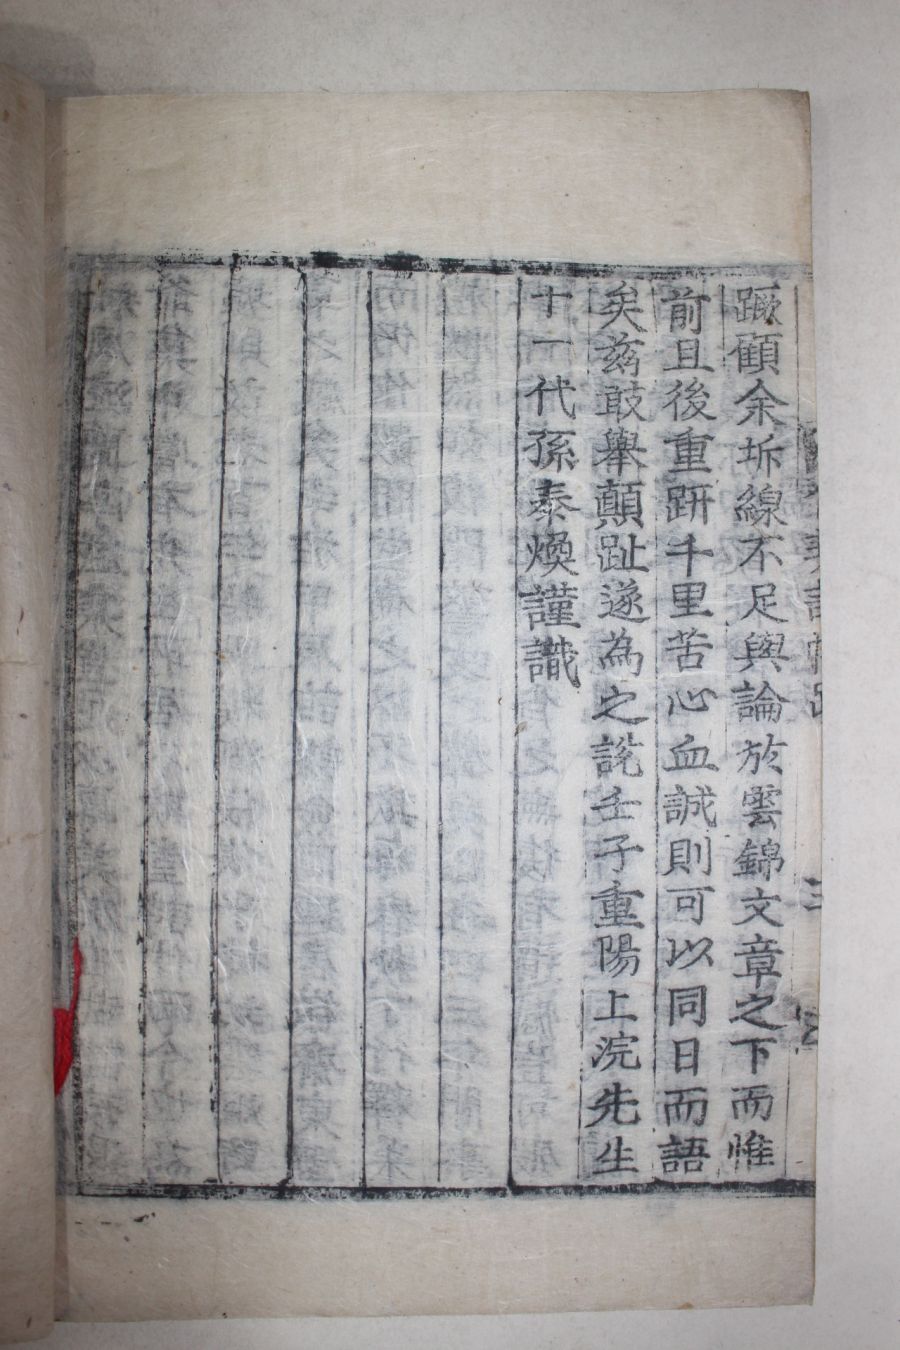 蹶顧余坼線不足與論於雲錦文章之下而惟
前且後重趼千里苦心血誠則可以同日而語
矣玆敢擧顛趾遂為之說壬子重陽上浣先生
十一代孫泰煥謹識